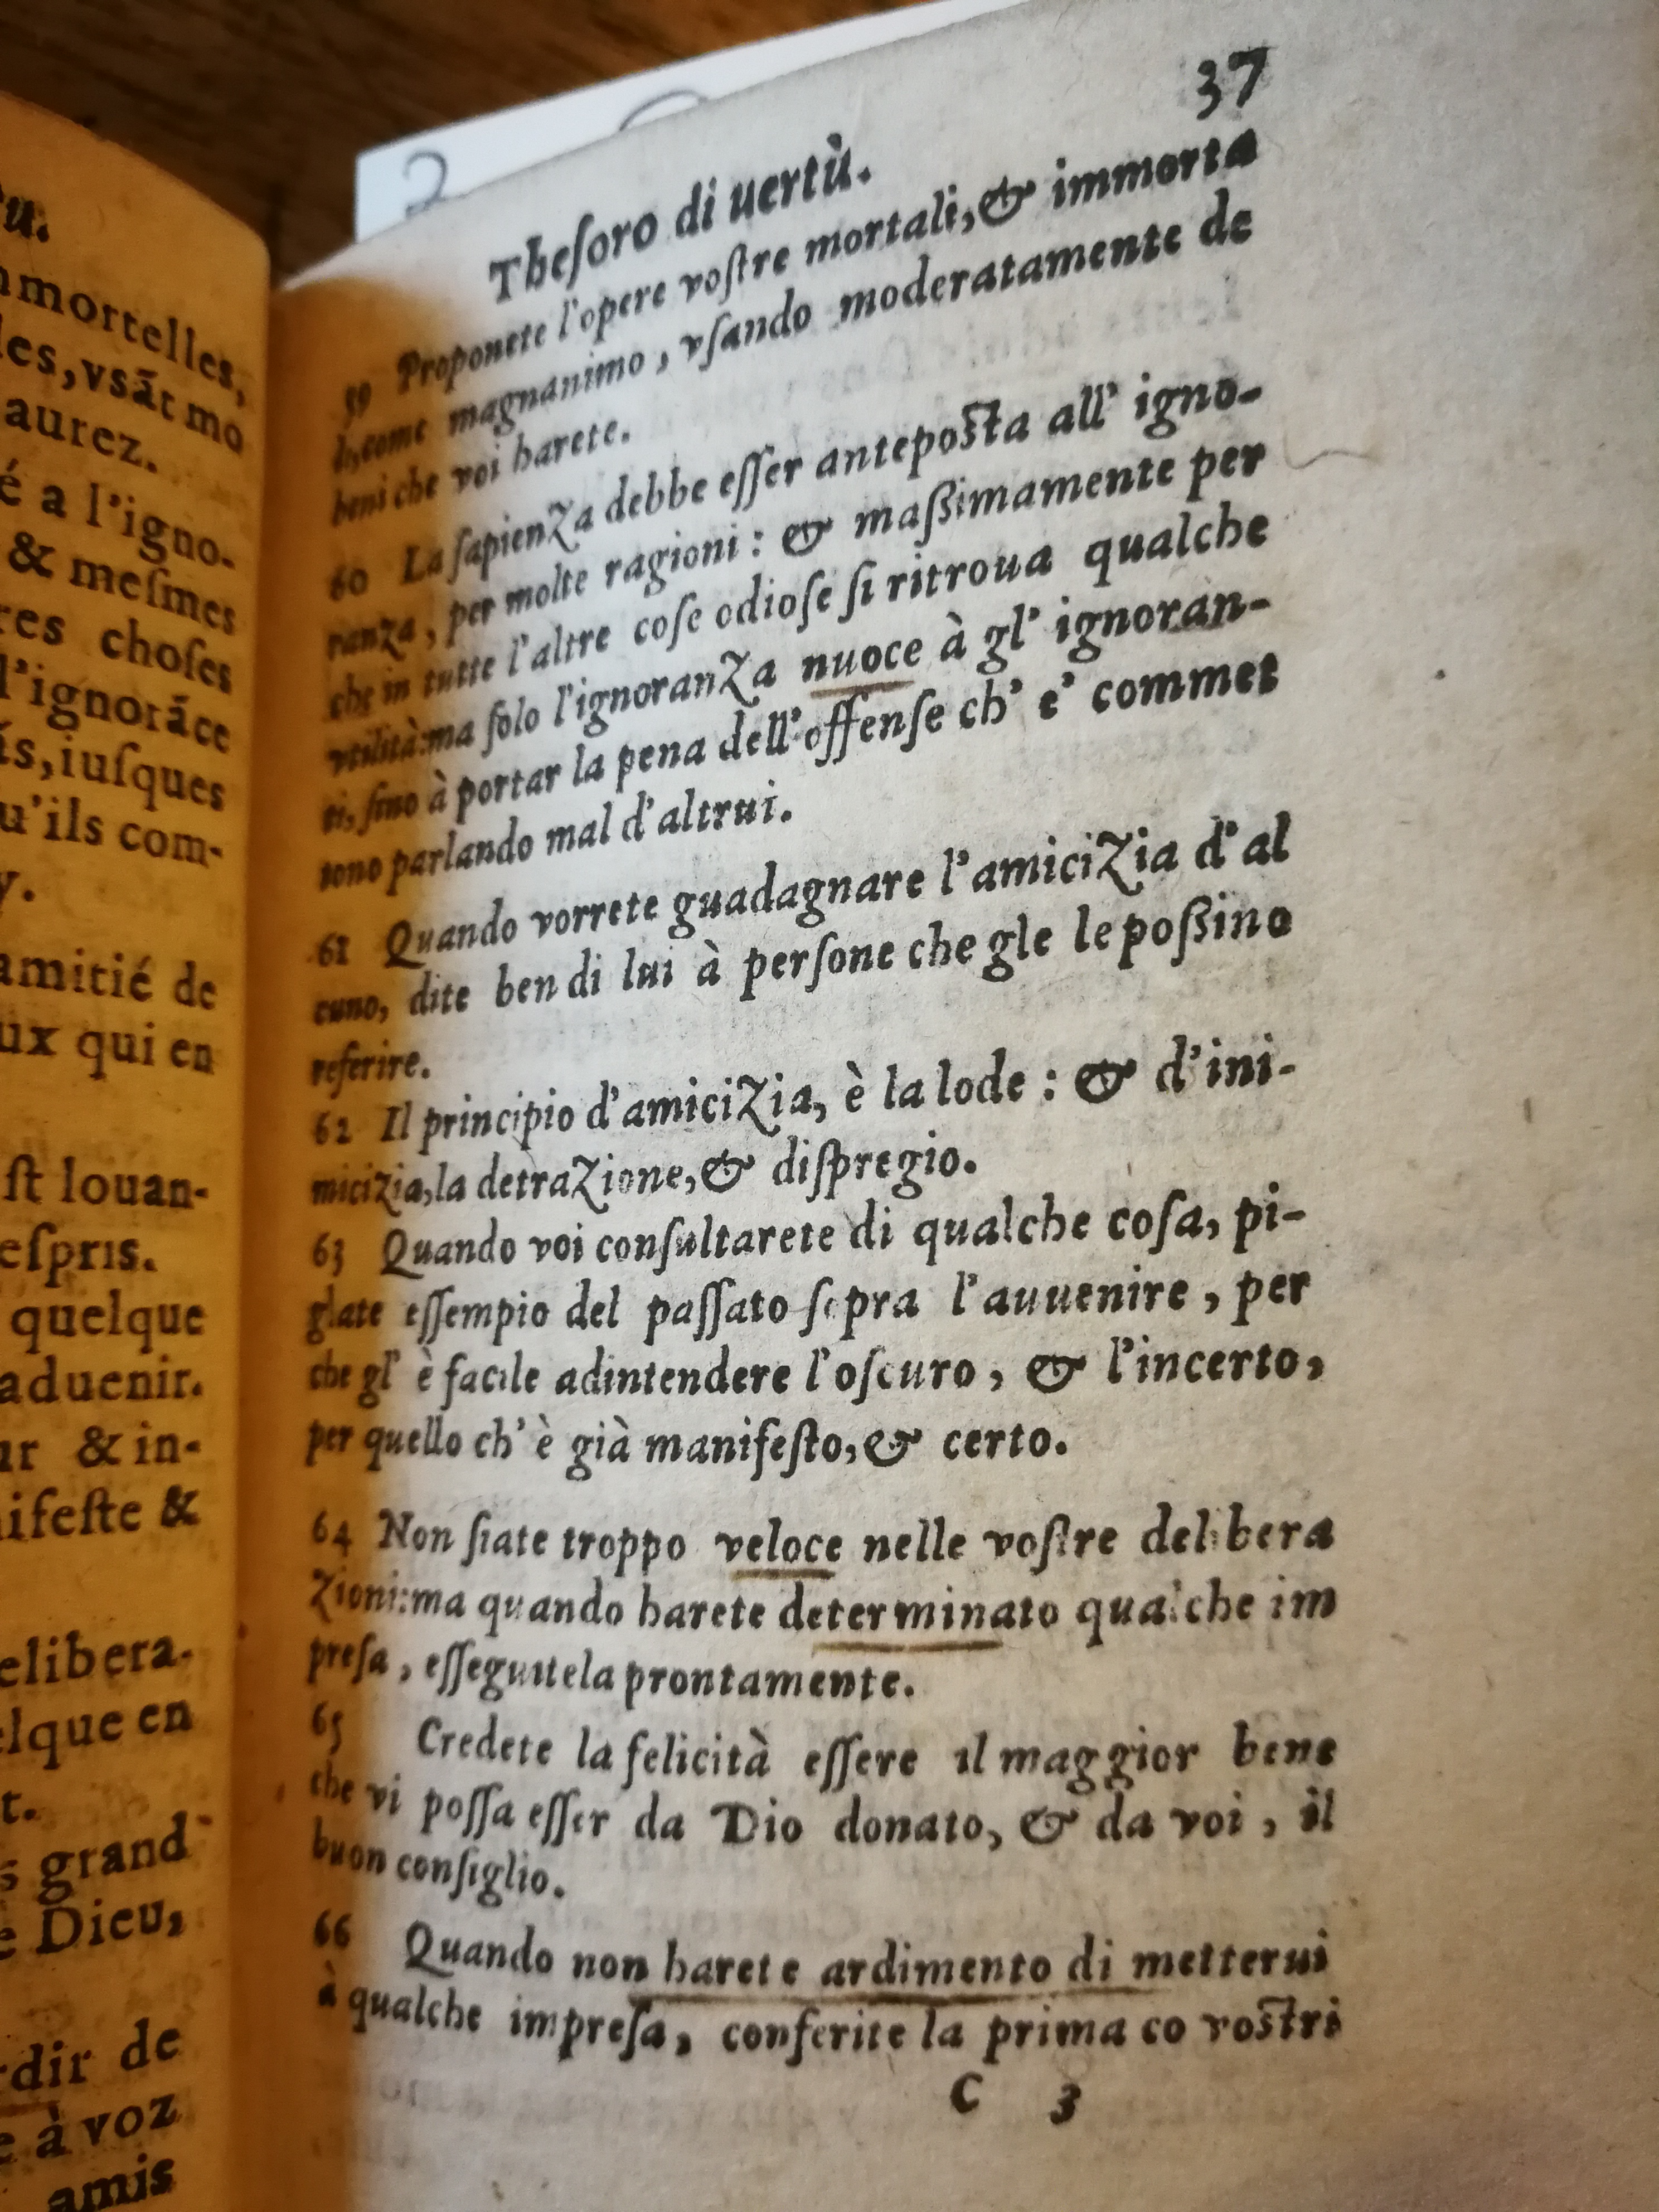 u.
mmortelles,
les,vsãt mo
aurez.
é a l'igno-
& meſmes
res choſes
l'ignorãce
ãs,iuſques
u'ils com-
y.
amitié de
ux qui en
ſt louan-
eſpris.
quelque
aduenir.
ur & in-
nifeſte &
elibera-
elque en
t.
s grand
e Dieu,
rdir de
e à voz
amis
2
37
Theſoro di uertù.
59 Proponete l'opere voſtre mortali,& immorta
li,come magnanimo, vſando moderatamente de
beni che voi harete.
60 La ſapienza debbe eſſer antepoſta all' igno-
ranza, per molte ragioni: & maßimamente per
che in tutte l'altre coſe odioſe ſi ritroua qualche
vtilità:ma ſolo l'ignoranza nuoce à gl' ignoran-
ti, ſino à portar la pena dell'offenſe ch' e' commet
tono parlando mal d'altrui.
61 Quando vorrete guadagnare l'amicizia d'al
cuno, dite ben di lui à perſone che gle le poßino
referire.
62 Il principio d'amicizia, è la lode: & d'ini-
micizia,la detrazione,& diſpregio.
63 Quando voi conſultarete di qualche coſa, pi-
glate eſſempio del paſſato ſopra l'auuenire, per
che gl' è facile adintendere l'oſcuro, & l'incerto,
per quello ch' è già manifeſto,& certo.
64 Non ſiate troppo veloce nelle voſtre delibera
zioni:ma quando harete determinato qualche im
preſa, eſſeguitela prontamente.
65 Credete la felicità eſſere il maggior bene
che vi poſſa eſſer da Dio donato, & da voi, il
buon conſiglio.
66 Quando non harete ardimento di metterui
à qualche impreſa, conferite la prima co voſtri
C 3